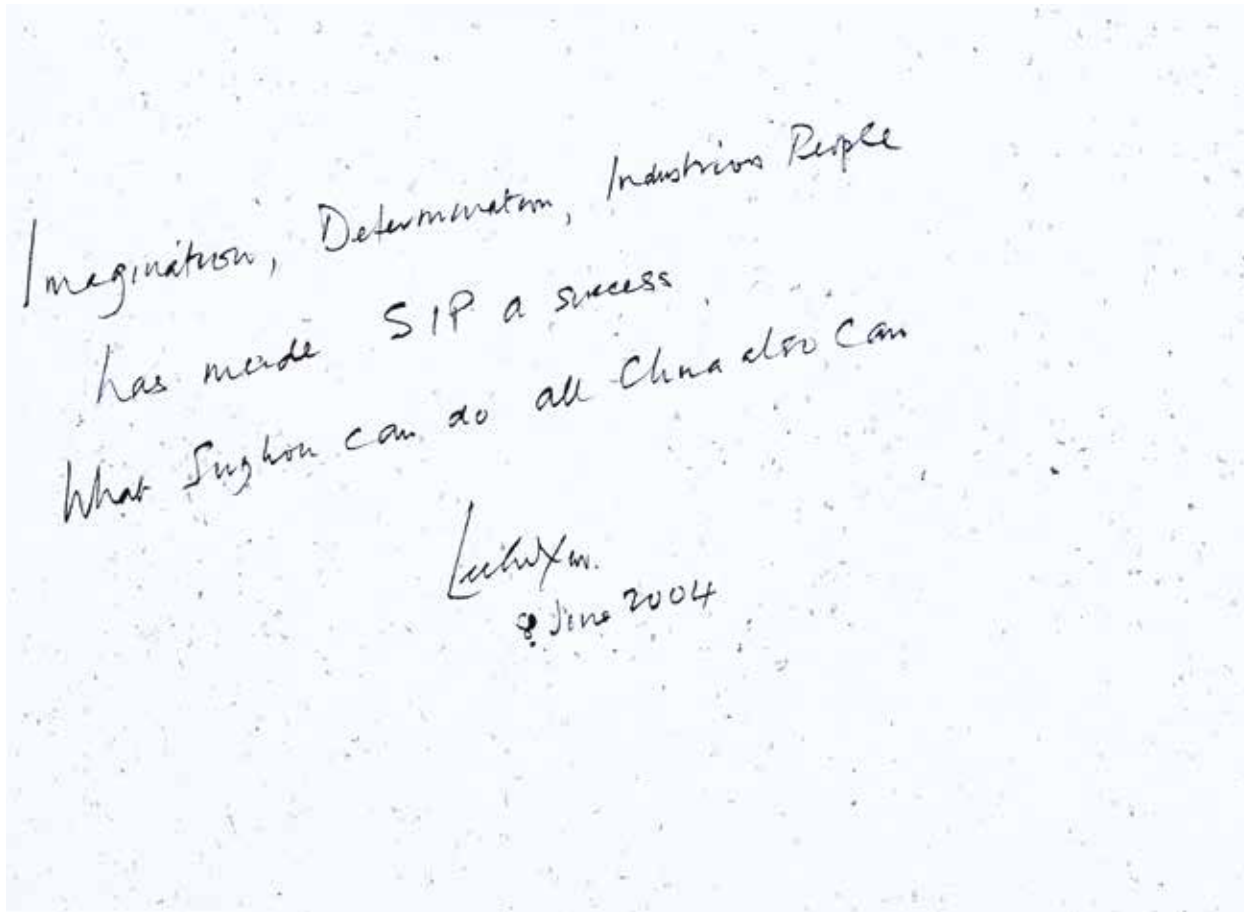 Imagination, Determination, Industrious People
has made SIP a success.
What Suzhou can do all China also can
8 June 2004